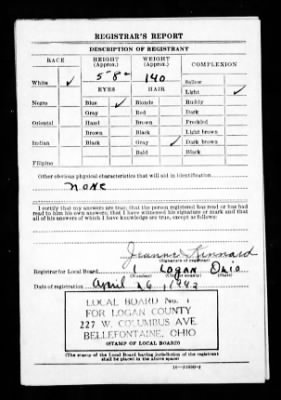 REGISTRAR'S REPORT
DESCRIPTION OF REGISTRANT
RACE HEIGHT (Approx.) WEIGHT (Approx.) COMPLEXION
White ✓ 5-8- 140 Sallow
EYES HAIR Light ✓
Negro Blue ✓ Blonde Ruddy
Gray Red Dark
Oriental Hazel Brown Freckled
Brown Black Light brown
Indian Black Gray ✓ Dark brown
Bald Black
Filipino
Other obvious physical characteristics that will aid in identification
none
I certify that my answers are true; that the person registered has read or has had
read to him his own answers; that I have witnessed his signature or mark and that
all of his answers of which I have knowledge are true, except as follows:
Jeanne Kennard
(Signature of registrar)
Registrar for Local Board 1 LOGAN OHIO
(Number) (City or county) (State)
Date of registration April 26, 1942
LOCAL BOARD No. 1
FOR LOGAN COUNTY
227 W. COLUMBUS AVE.
BELLEFONTAINE, OHIO
(STAMP OF LOCAL BOARD)
(The stamp of the Local Board having jurisdiction of the registrant
shall be placed in the above space)